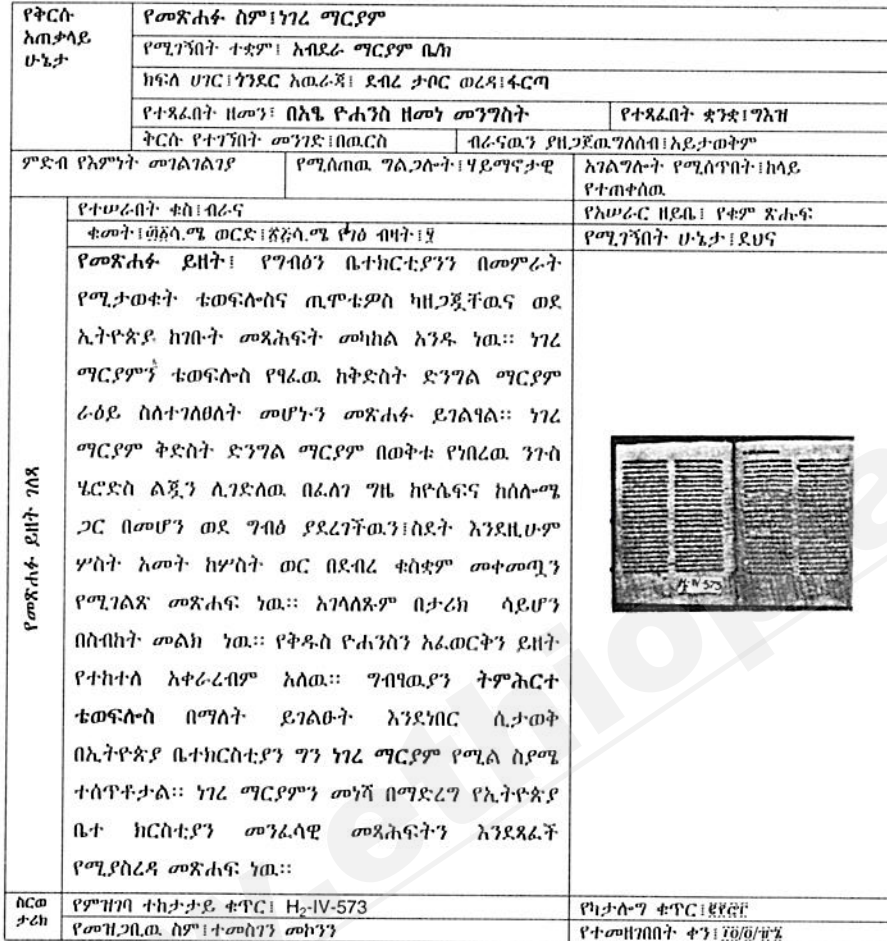 የቅርሱ አጠቃላይ ሁኔታ
የመጽሐፉ ስም፤ነገረ ማርያም
የሚገኝበት ተቋም፤ አብደራ ማርያም ቤ/ክ
ክፍለ ሀገር፤ጎንደር አዉራጃ፤ ደብረ ታቦር ወረዳ፤ፋርጣ
የተጻፈበት ዘመን፤ በአፄ ዮሐንስ ዘመነ መንግስት
የተጻፈበት ቋንቋ፤ግእዝ
ቅርሱ የተገኘበት መንገድ፤በዉርስ
ብራናዉን ያዘጋጀዉግለሰብ፤አይታወቅም
ምድብ የእምነት መገልገልገያ
የሚሰጠዉ ግልጋሎት፤ሃይማኖታዊ
አገልግሎት የሚሰጥበት፤ከላይ
የተጠቀሰዉ
የመጽሐፉ ይዘት ገለጻ
የተሠራበት ቁስ፤ብራና
የአሠራር ዘይቤ፤ የቁም ጽሑፍ
ቁመት፤ ሳ.ሜ ወርድ፤ ሳ.ሜ የገፅ ብዛት፤
የሚገኝበት ሁኔታ፤ደህና
የመጽሐፉ ይዘት፤ የግብፅን ቤተክርቲያንን በመምራት
የሚታወቁት ቴወፍሎስና ጢሞቴዎስ ካዘጋጇቸዉና ወደ
ኢትዮጵያ ከገቡት መጻሕፍት መካከል አንዱ ነዉ። ነገረ
ማርያምን ቴወፍሎስ የፃፈዉ ከቅድስት ድንግል ማርያም
ራዕይ ስለተገለፀለት መሆኑን መጽሐፉ ይገልፃል። ነገረ
ማርያም ቅድስት ድንግል ማርያም በወቅቱ የነበረዉ ንጉስ
ሄሮድስ ልጇን ሊገድለዉ በፈለገ ግዜ ከዮሴፍና ከሰሎሜ
ጋር በመሆን ወደ ግብፅ ያደረገችዉን፤ስደት እንደዚሁም
ሦስት አመት ከሦስት ወር በደብረ ቁስቋም መቀመጧን
የሚገልጽ መጽሐፍ ነዉ። አገላለጹም በታሪክ ሳይሆን
በስብከት መልክ ነዉ። የቅዱስ ዮሐንስን አፈወርቅን ይዘት
የተከተለ አቀራረብም አለዉ። ግብፃዉያን ትምሕርተ
ቴወፍሎስ በማለት ይገልፁት እንደነበር ሲታወቅ
በኢትዮጵያ ቤተክርስቲያን ግን ነገረ ማርያም የሚል ስያሜ
ተሰጥቶታል። ነገረ ማርያምን መነሻ በማድረግ የኢትዮጵያ
ቤተ ክርስቲያን መንፈሳዊ መጻሕፍትን እንደጻፈች
የሚያስረዳ መጽሐፍ ነዉ።
H2-IV-573
ስርወ ታሪክ
የምዝገባ ተከታታይ ቁጥር፤ H₂-IV-573
የካታሎግ ቁጥር፤
የመዝጋቢዉ ስም፤ተመስገን መኮንን
የተመዘገበበት ቀን፤